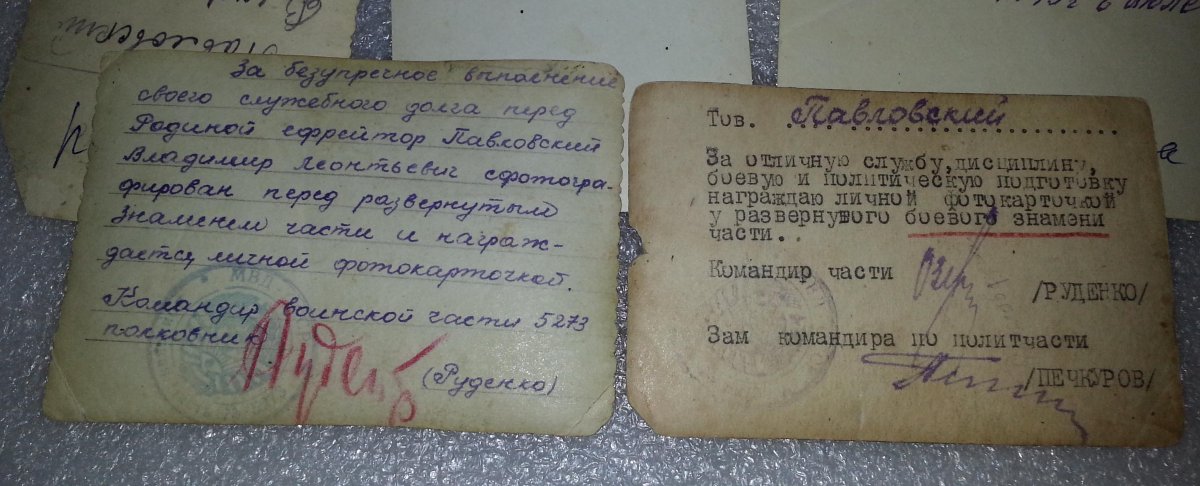 За безупречное выполнение
своего служебного долга перед
Родиной ефрейтор Павловский
Владимир Леонтьевич сфотогра-
фирован перед развернутым
Знаменем части и награж-
дается личной фотокарточкой.
МВД
Командир воинской части 5273
полковник
Руденко
(Руденко)
Тов. Павловский
За отличную службу, дисциплину,
боевую и политическую подготовку
награждаю личной фотокарточкой
у развернутого боевого знамени
части..
Командир части
/РУДЕНКО/
Зам командира по политчасти
/ПЕЧКУРОВ/